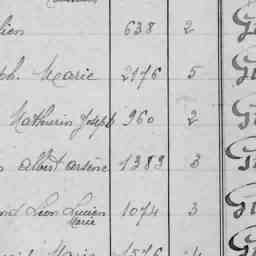 lien 638 2 G
ph. Marie 2176 5 G
Mathurin Joseph 960 2 G
albert arsène 1383 3 G
Léon Lucien 1074 3 G
Marie
Marie 1576 4